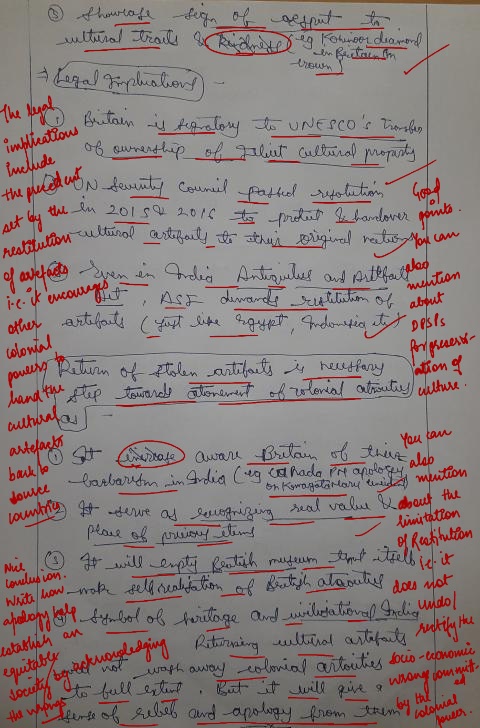 ③ Showcase sign of respect to
cultural traits & kindness (eg Kohinoor diamond
in Britain in
crown)
⇒ Legal Implications -
① Britain is signatory to UNESCO's Transfer
of ownership of cultural property
② UN Security Council passed resolution
in 2015 & 2016 to protect & handover
cultural artifacts to their original nation
③ Even in India Antiquities and Art
Act, ASI demands restitution of
artefacts (just like Egypt, Indonesia etc)
Return of stolen artifacts is necessary
step towards atonement of colonial atrocities
as -
① It increase aware Britain of their
barbarism in India (eg Canada PM apology
on Komagata Maru
② It serve as recognizing real value &
place of items
③ It will empty British museum itself
make self realisation of British atrocities
④ Symbol of heritage and India
Returning cultural artefacts
would not wash away colonial atrocities
to full extent. But it will give a
sense of relief and apology from them
The legal
implications
include
the precedent
set by the
restitution
of artefacts
i.e. it encourages
other
colonial
powers to
hand the
cultural
artefacts
back to
source
countries
Nice
conclusion.
Write how
apology help
establish an
equitable
society by acknowledging
the wrongs
Good
points.
You can
also
mention
about
DPSPs
for preserv-
ation of
culture.
You can
also
mention
about the
limitation
of Restitution
i.e. it
does not
undo/
rectify the
socio-economic
wrong commit-
ed
by the colonial
power.